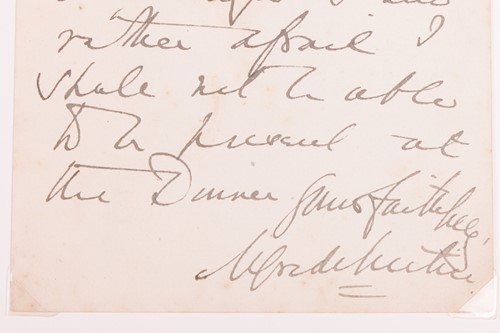 rather afraid I
shall not be able
to be present at
the Dinner Yours faithfully